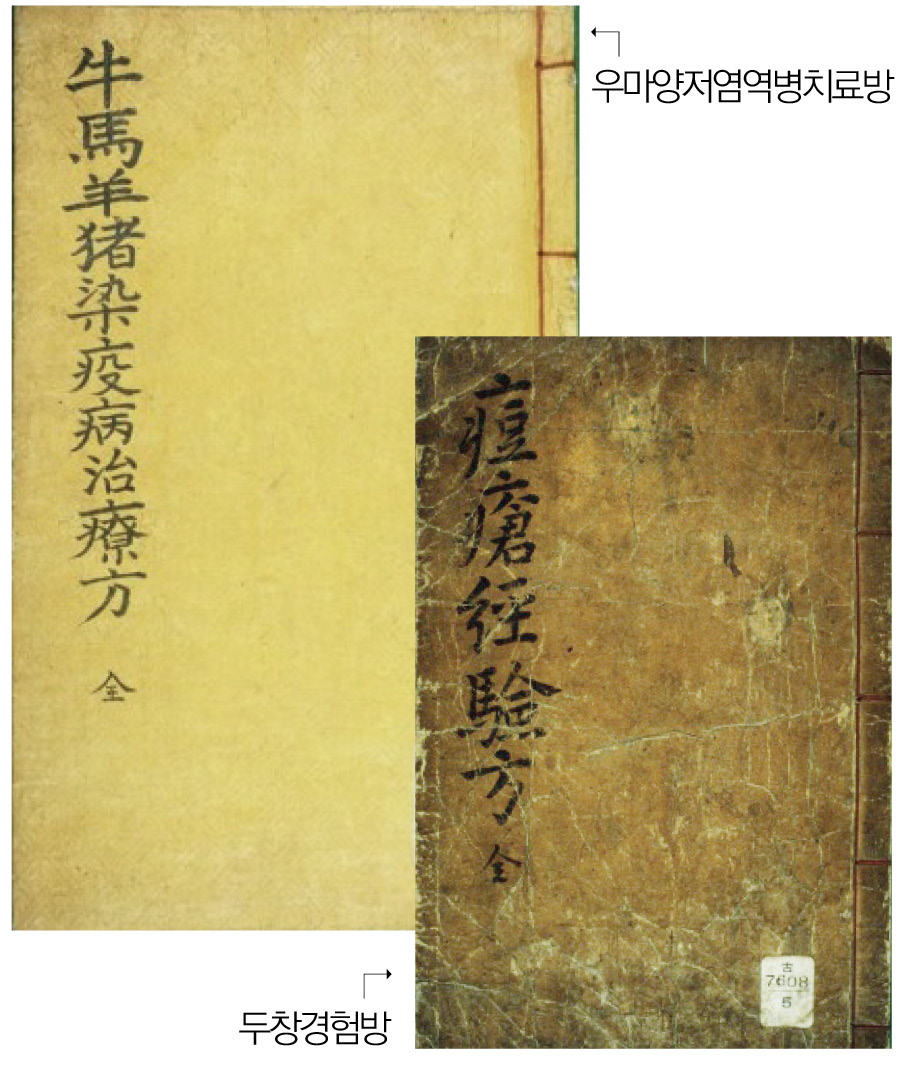 우마양저염역병치료방
牛馬羊猪染疫病治療方 全
痘瘡經驗方 全
古
7608
5
두창경험방